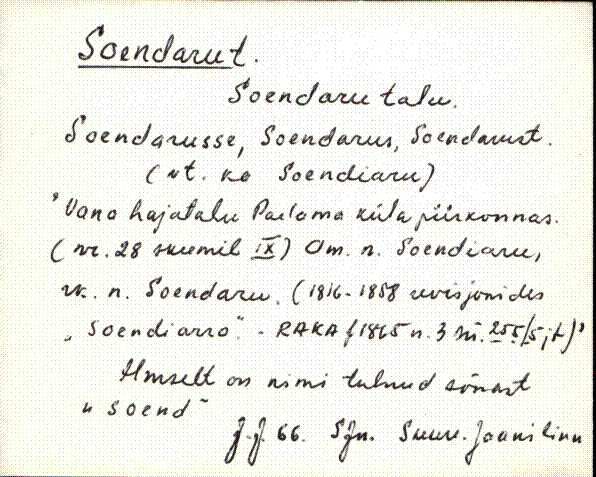 Soendarut.
Soendaru talu.
Soendarusse, Soendarus, Soendarust.
(vt. ka Soendiaru)
"Vana hajatalu Paelama küla piirkonnas.
(nr. 28 skeemil IX) Om. n. Soendiaru,
rk. n. Soendaru. (1816-1858 revisjonides
"Soendiarro". - RAKA f 1865 n. 3 sü. 255/5, jt)"
Ilmselt on nimi tulnud sõnast
"soend"
J. J. 66. SJn. Suure-Jaani linn